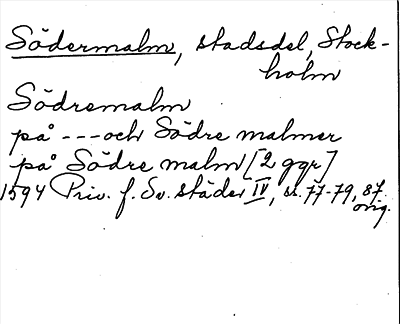 Södermalm, stadsdel, Stock-
holm
Södremalm
på --- och Södre malmer
på Södre malm [2 ggr]
1594 Priv. f. Sv. städer IV, ss. 77-79, 87.
orig.